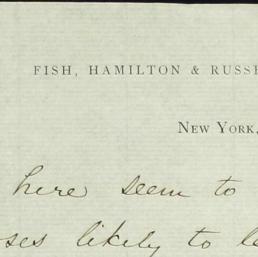 FISH, HAMILTON & RUSSE
NEW YORK,
here seem to
ses likely to le